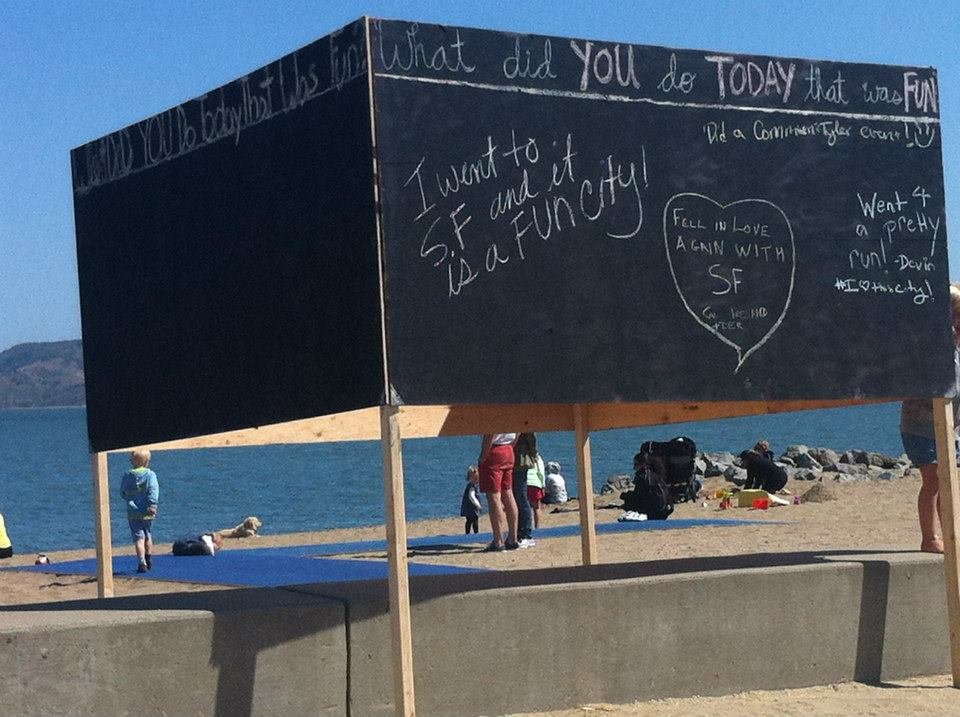 What DID YOU Do Today that was fun
What did YOU do TODAY that was FUN
Did a Commun Tyler event!
I went to
S.F and it
is a FUN city!
FELL IN LOVE
AGAIN WITH
SF
Went 4
a pretty
run! -Devin
#I♡this city!